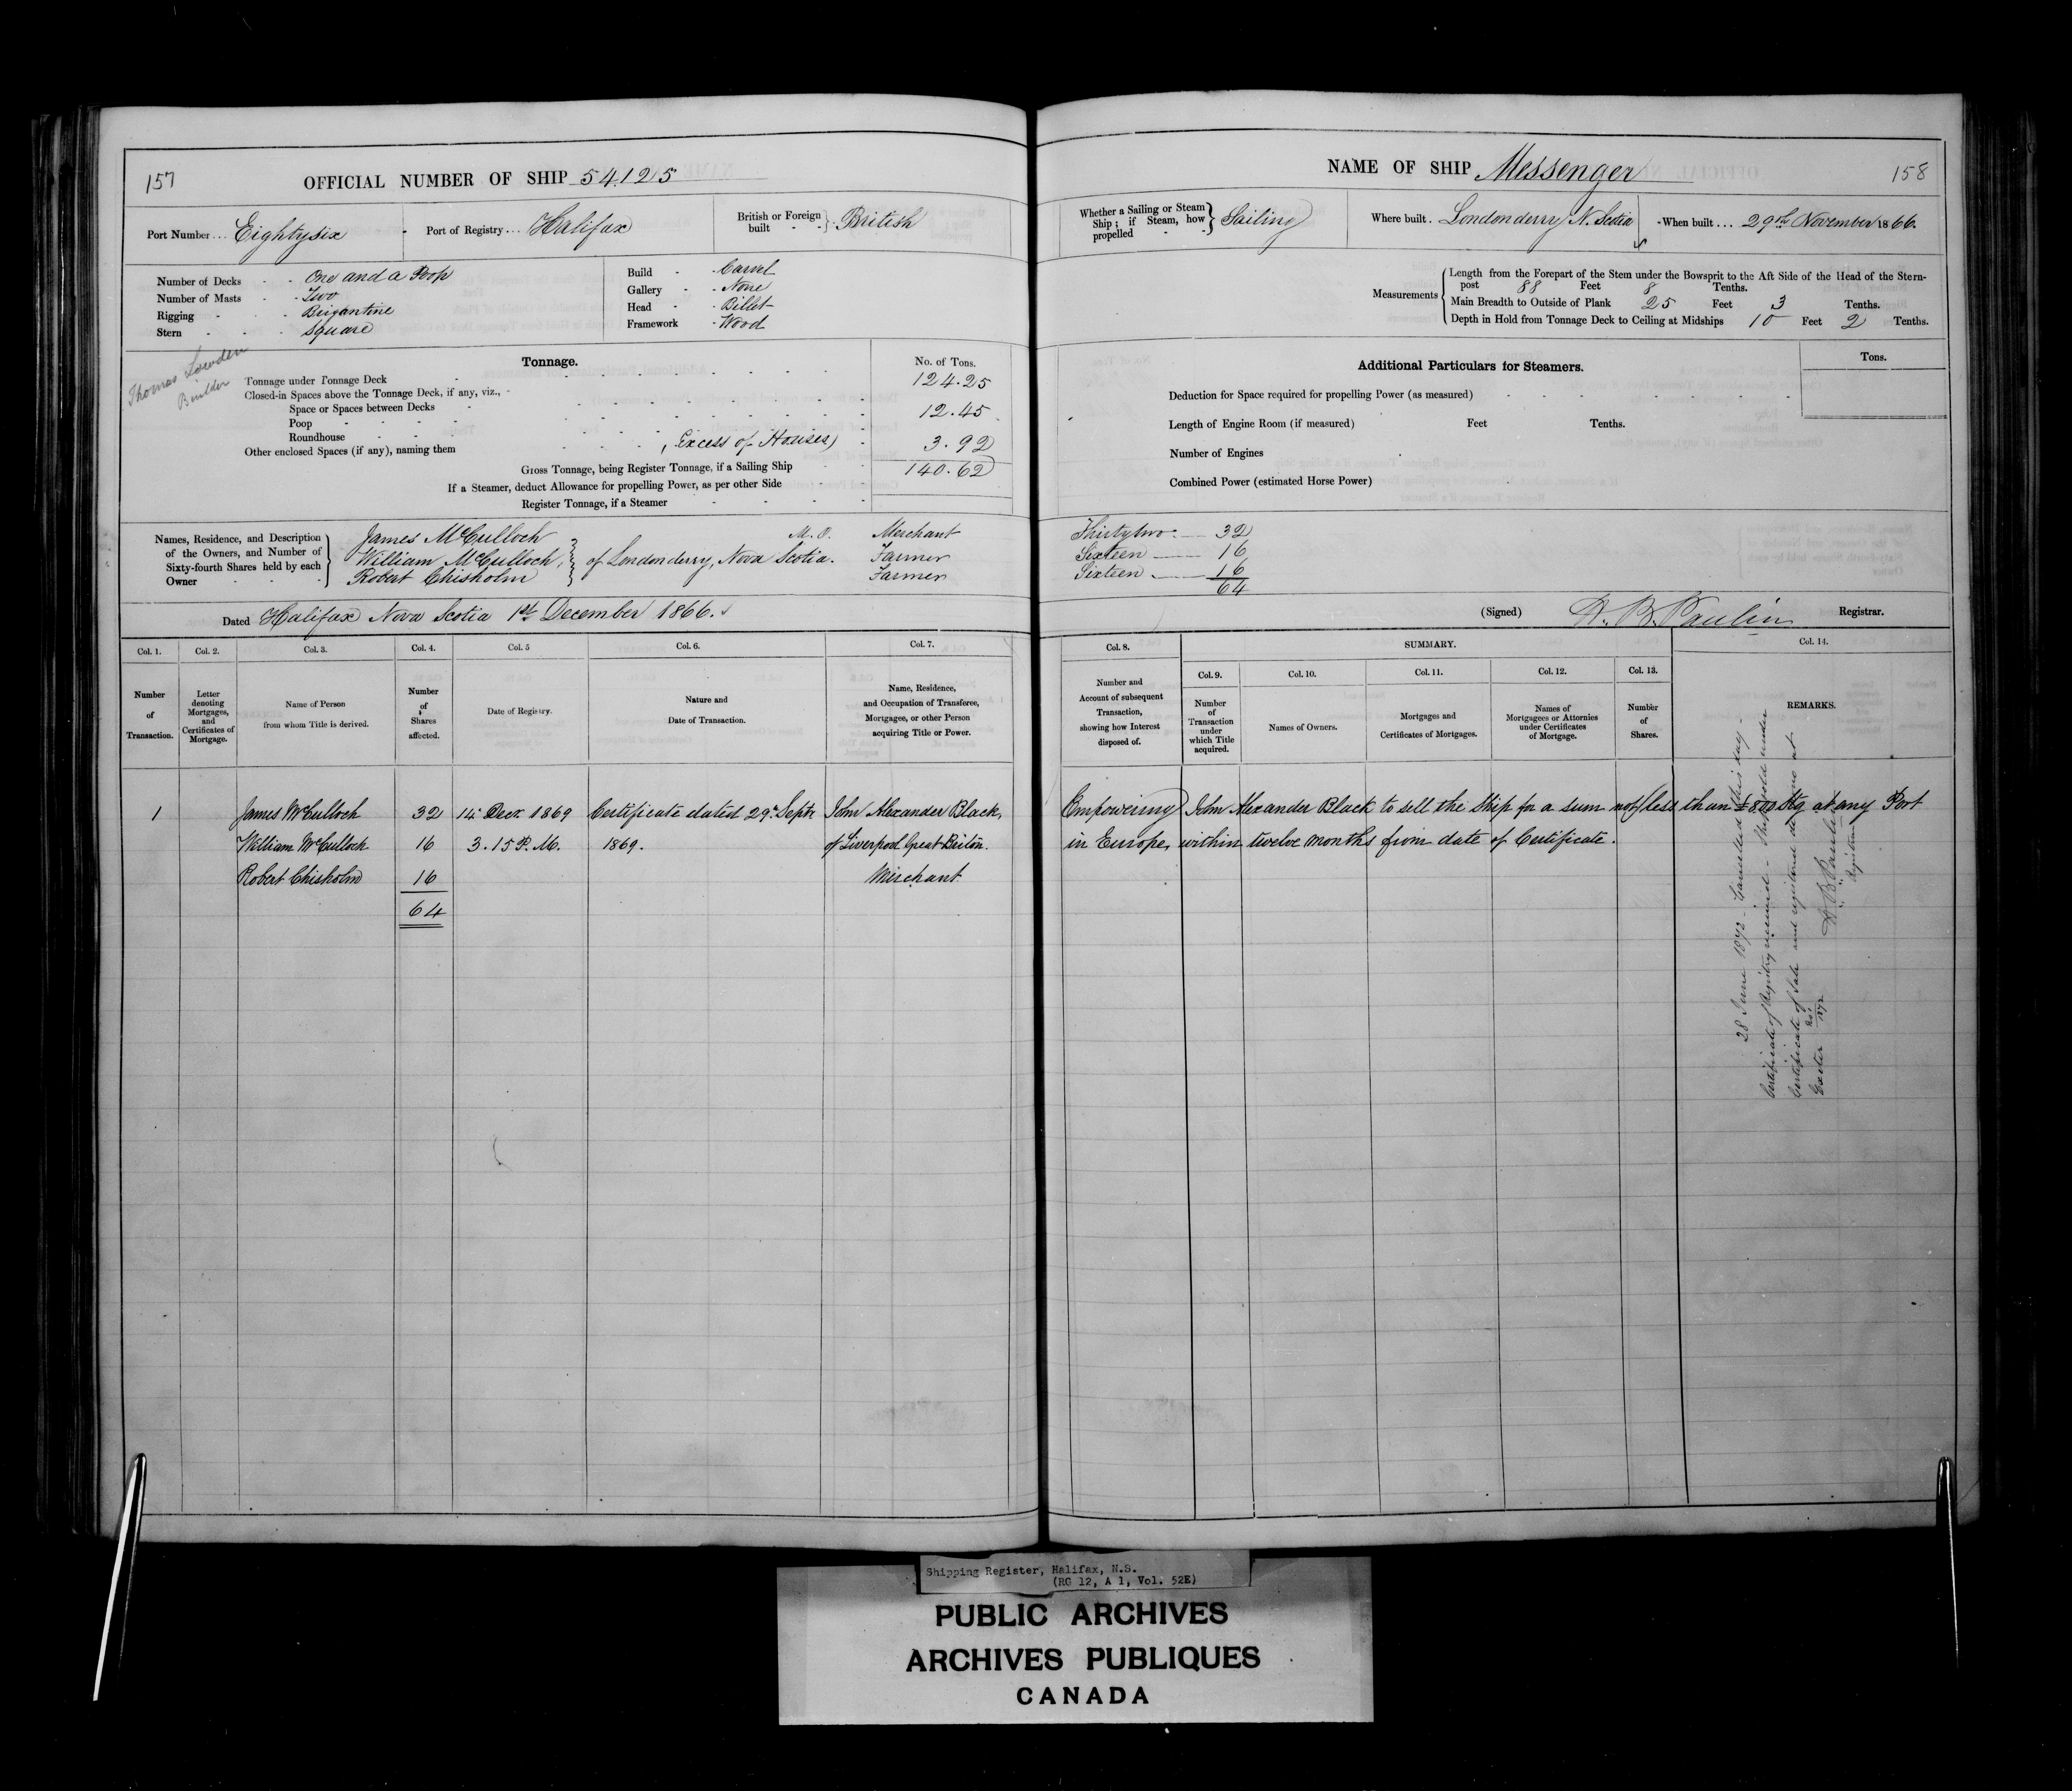 157
OFFICIAL NUMBER OF SHIP 54.125
Port Number ... Eightysix - Port of Registry ... Halifax British or Foreign built - - } British
Number of Decks - - One and a Poop
Number of Masts - - Two
Rigging - - Brigantine
Stern - - - square
Build - - Carvel
Gallery - - None
Head - - Billet
Framework - Wood
Thomas Lowden
Builder
Tonnage. No. of Tons.
Tonnage under Tonnage Deck 124.25
Closed-in Spaces above the Tonnage Deck, if any, viz., -
Space or Spaces between Decks
Poop 12.45
Roundhouse
Other enclosed Spaces (if any), naming them (Excess of Houses) 3.92
Gross Tonnage, being Register Tonnage, if a Sailing Ship 140.62
If a Steamer, deduct Allowance for propelling Power, as per other Side
Register Tonnage, if a Steamer
Names, Residence, and Description of the Owners, and Number of Sixty-fourth Shares held by each Owner
James McCulloch M.O. Merchant
William McCulloch, } of Londonderry, Nova Scotia. Farmer
Robert Chisholm Farmer
Dated Halifax Nova Scotia 1st December 1866.
Col. 1. Col. 2. Col. 3. Col. 4. Col. 5 Col. 6. Col. 7.
Number of Transaction.
Letter denoting Mortgages, and Certificates of Mortgage.
Name of Person from whom Title is derived.
Number of Shares affected.
Date of Registry.
Nature and Date of Transaction.
Name, Residence, and Occupation of Transferee, Mortgagee, or other Person acquiring Title or Power.
1 James McCulloch 32 14 Decr. 1869 Certificate dated 29th Septr John Alexander Black,
William McCulloch 16 3.15 P.M. 1869. of Liverpool Great Britain.
Robert Chisholm 16 Merchant
64
NAME OF SHIP Messenger 158
Whether a Sailing or Steam Ship; if Steam, how propelled - - } Sailing
Where built . Londonderry N. Scotia - When built ... 29th November 1866.
Measurements
Length from the Forepart of the Stem under the Bowsprit to the Aft Side of the Head of the Stern-
post 88 Feet 8 Tenths.
Main Breadth to Outside of Plank 25 Feet 3 Tenths.
Depth in Hold from Tonnage Deck to Ceiling at Midships 10 Feet 2 Tenths.
Additional Particulars for Steamers. Tons.
Deduction for Space required for propelling Power (as measured)
Length of Engine Room (if measured) Feet Tenths.
Number of Engines
Combined Power (estimated Horse Power)
Thirtytwo 32
Sixteen 16
Sixteen 16
64
(Signed) H. B. Paulin Registrar.
Col. 8. SUMMARY. Col. 14.
Col. 9. Col. 10. Col. 11. Col. 12. Col. 13.
Number and Account of subsequent Transaction, showing how Interest disposed of.
Number of Transaction under which Title acquired.
Names of Owners.
Mortgages and Certificates of Mortgages.
Names of Mortgagees or Attornies under Certificates of Mortgage.
Number of Shares.
REMARKS.
Empowering John Alexander Black to sell the Ship for a sum not less than £800 Stg at any Port
in Europe, within twelve months from date of Certificate.
28 June 1872 - Cancelled this day -
Certificate of Registry received - Ship sold under
Certificate of Sale and registered de novo at
Exeter No. 1/1872 H B Paulin
Registrar
Shipping Register, Halifax, N.S.
(RG 12, A 1, Vol. 52E)
PUBLIC ARCHIVES
ARCHIVES PUBLIQUES
CANADA